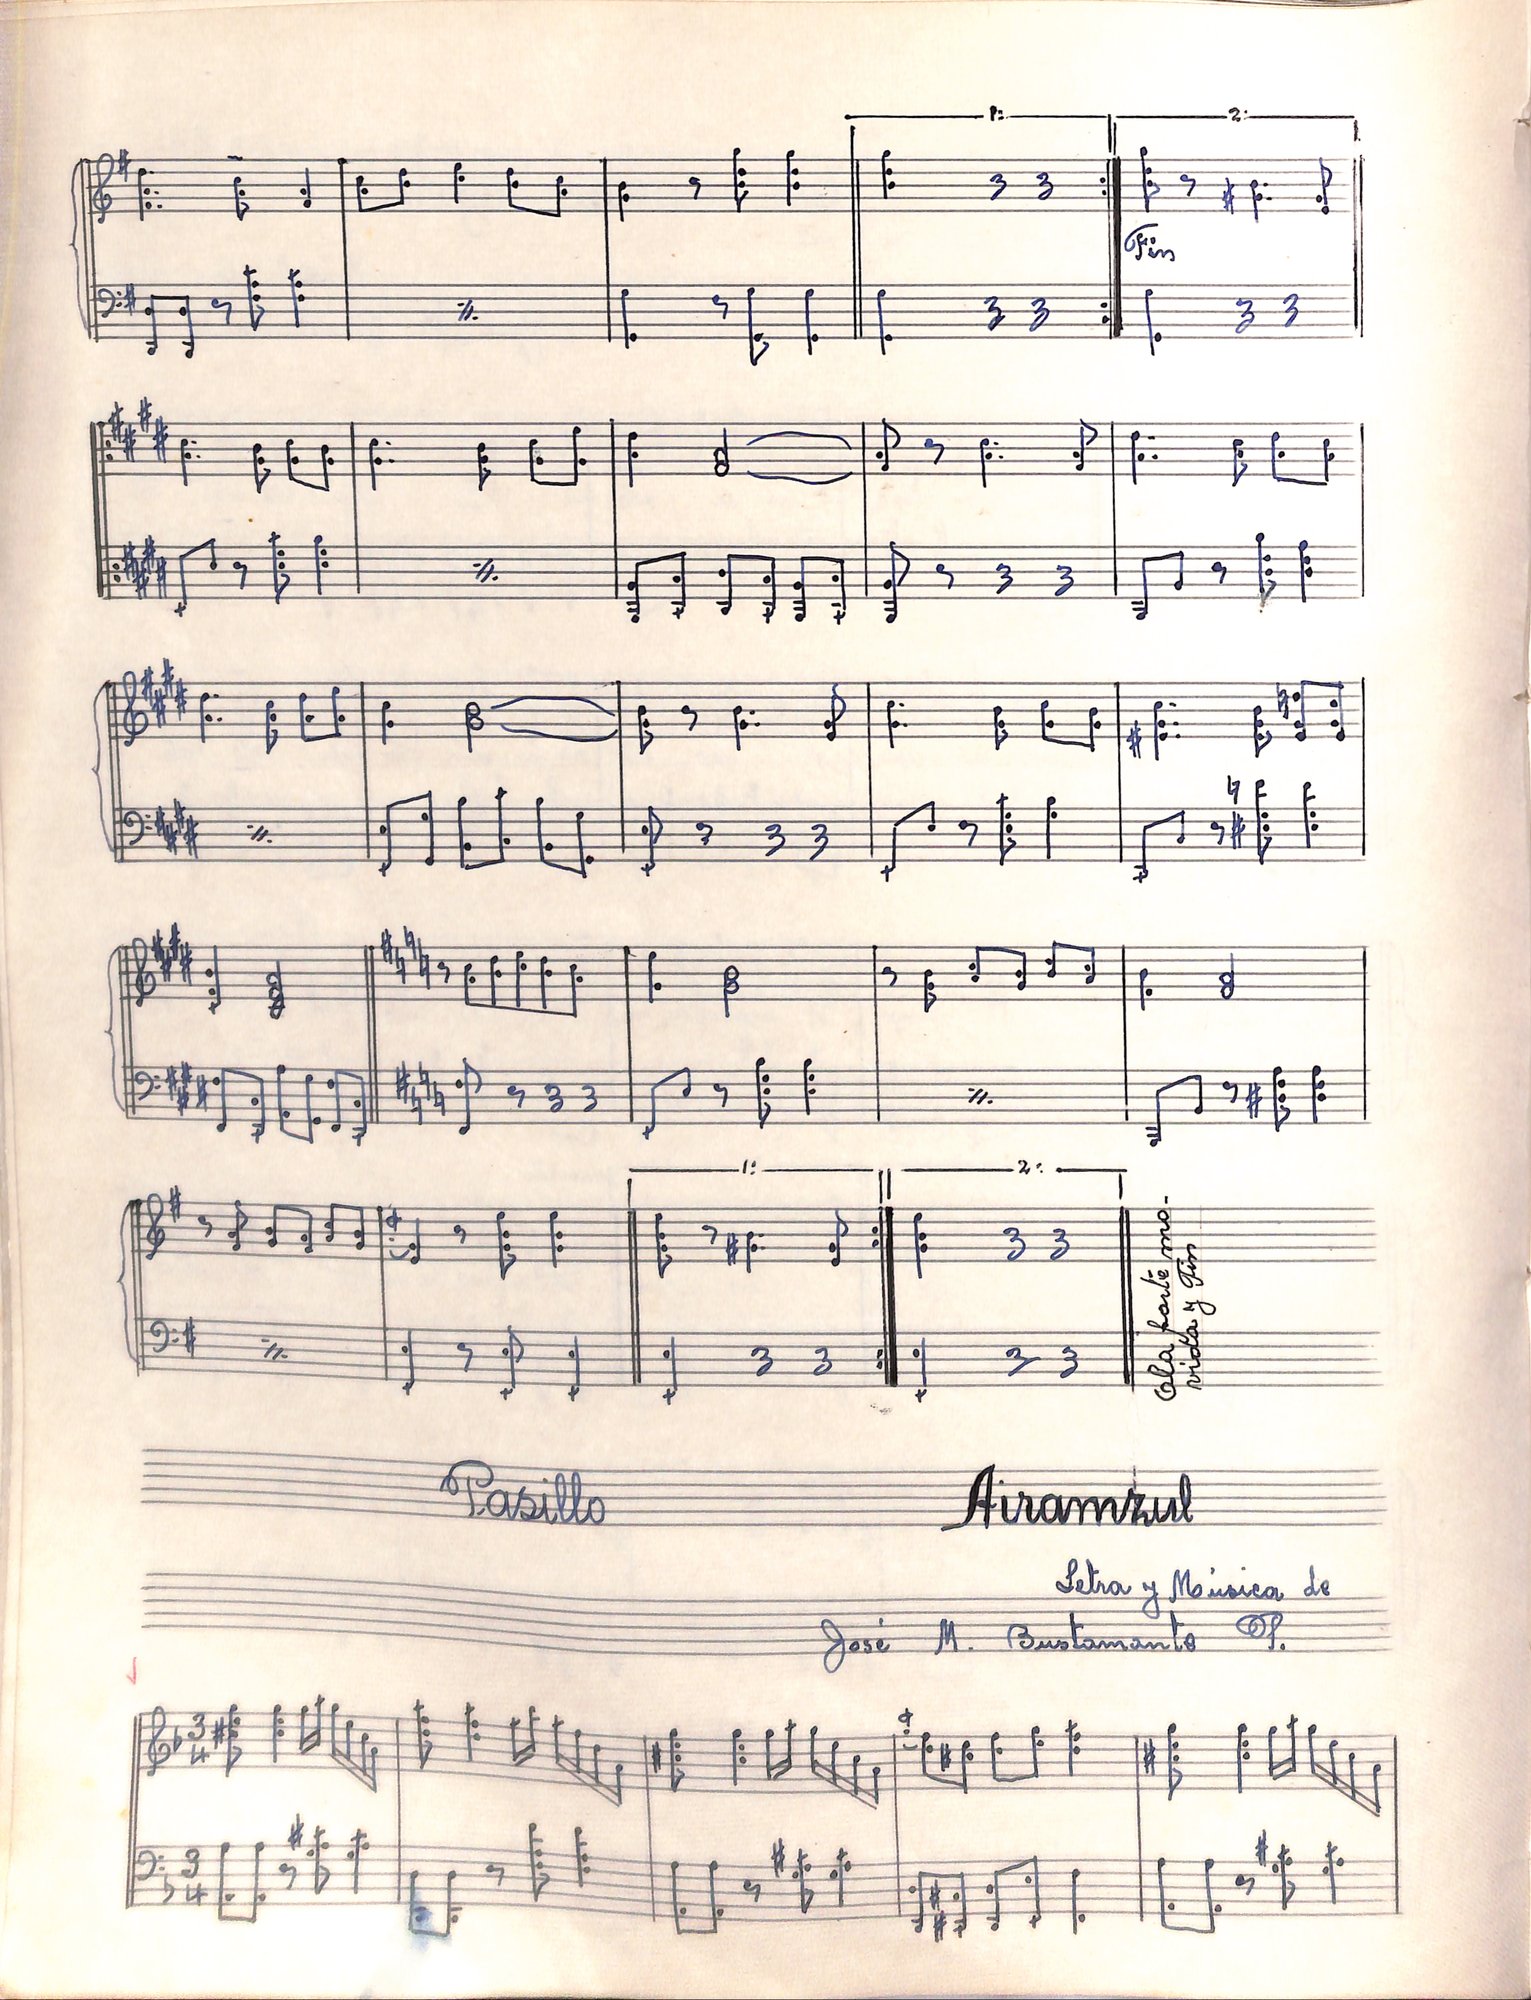 1:
2:
Fin
1:
2:
A la parte mo-
vida y Fin
Pasillo
Airamzul
Letra y Música de
José M. Bustamante P.
3
4
3
4